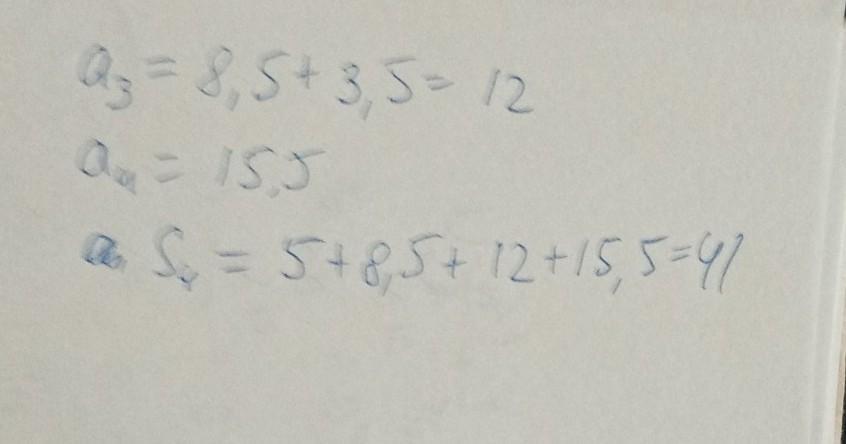 a₃ = 8,5 + 3,5 = 12
a₄ = 15,5
a S₄ = 5 + 8,5 + 12 + 15,5 = 41